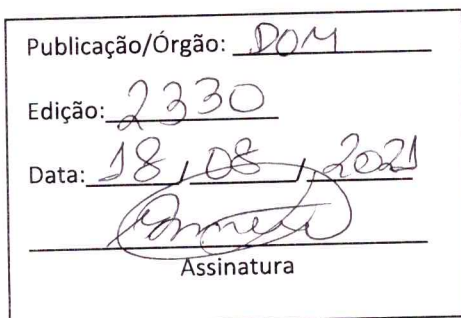 Publicação/Órgão: DOM
Edição: 2330
Data: 18 / 08 / 2021
Assinatura